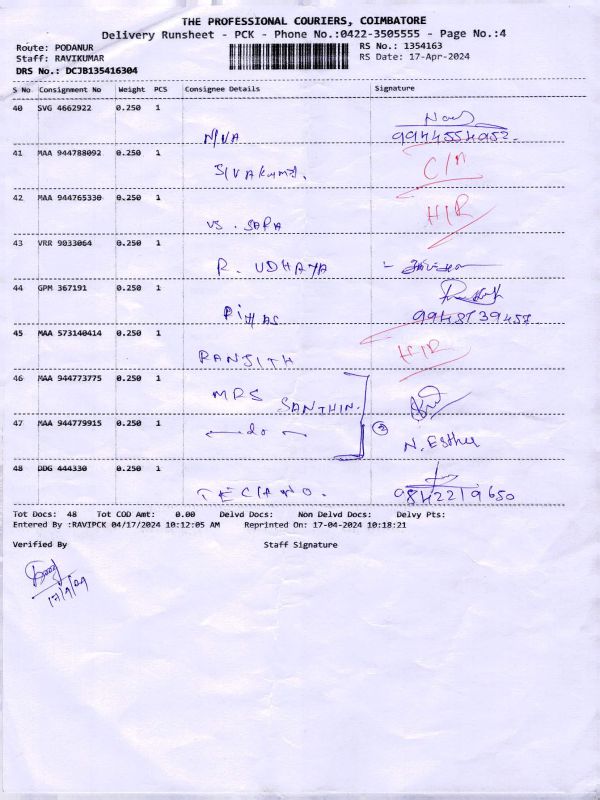 THE PROFESSIONAL COURIERS, COIMBATORE
Delivery Runsheet - PCK - Phone No.:0422-3505555 - Page No.:4
Route: PODANUR
RS No.: 1354163
Staff: RAVIKUMAR
RS Date: 17-Apr-2024
DRS No.: DCJB135416304
S No Consignment No Weight PCS Consignee Details Signature
40 SVG 4662922 0.250 1
N/VA 9944554952.
41 MAA 944788092 0.250 1
SIVAKUMAR.
42 MAA 944765330 0.250 1 H/R
VS. SARA
43 VRR 9033064 0.250 1
R. UDHAYA
44 GPM 367191 0.250 1
9948739457
45 MAA 573140414 0.250 1 H/R
RANJITH
46 MAA 944773775 0.250 1 MRS
SANTHIN.
47 MAA 944779915 0.250 1 do ②
N. Esther
48 DDG 444330 0.250 1
TECIANO. 9842219650
Tot Docs: 48 Tot COD Amt: 0.00 Delvd Docs: Non Delvd Docs: Delvy Pts:
Entered By :RAVIPCK 04/17/2024 10:12:05 AM Reprinted On: 17-04-2024 10:18:21
Verified By Staff Signature